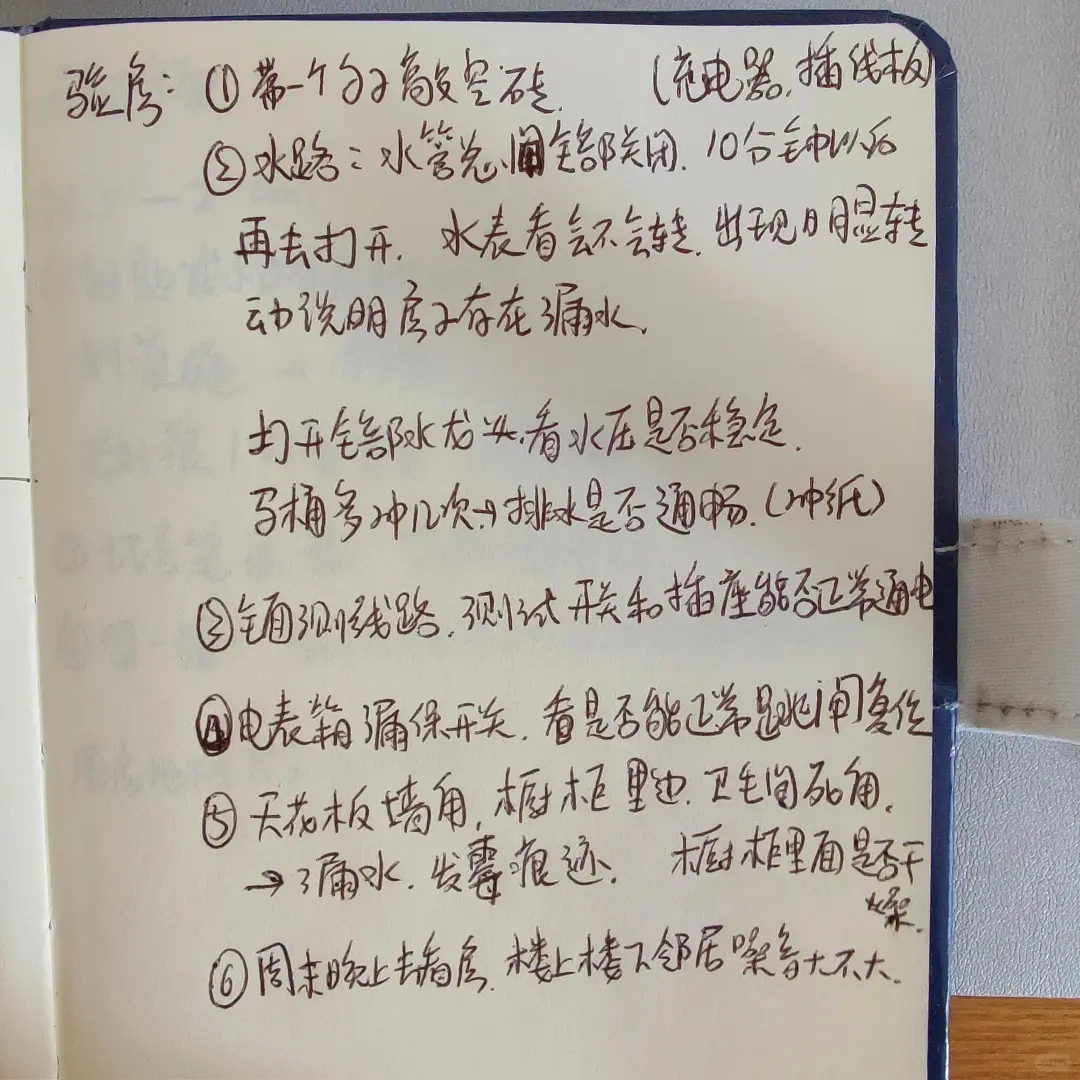 验房：①带一个勺子敲空砖.（充电器.插线板）
②水路：水管总闸全部关闭.10分钟以后
再去打开.水表看会不会转.出现明显转
动说明房子存在漏水.
打开全部水龙头.看水压是否稳定.
马桶多冲几次→排水是否通畅.（冲纸）
③全面测线路.测试开关和插座能否正常通电
④电表箱漏保开关.看是否能正常跳闸复位
⑤天花板墙角，橱柜里边.卫生间死角.
→漏水.发霉痕迹.橱柜里面是否干
燥.
⑥周末晚上去看房.楼上楼下邻居噪音大不大.